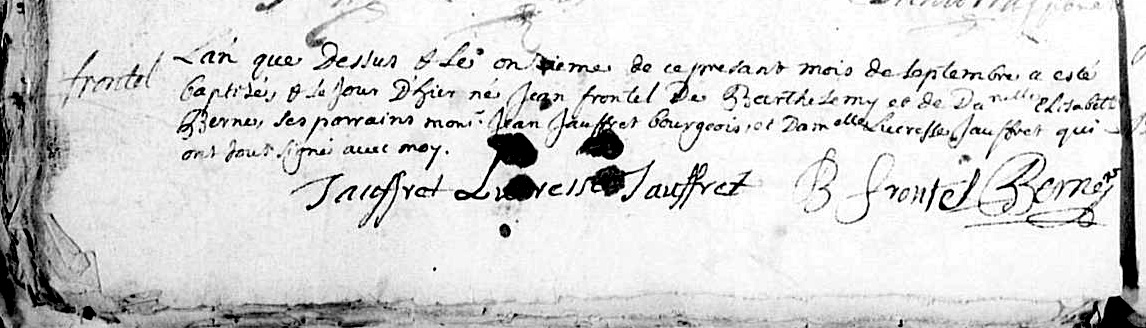 frontel
L'an que Dessus & Le onzieme de ce presant mois de septembre a esté
baptisé, & le Jour D'hier né Jean frontel De Barthelemy et de Danelle Elisabeth
Berne, ses parrains mons.r Jean Jauffret bourgeois, et Damelle Lucresse Jauffret qui
ont sout signé avec moy.
Jauffret Lucresse Jauffret B frontel Berne